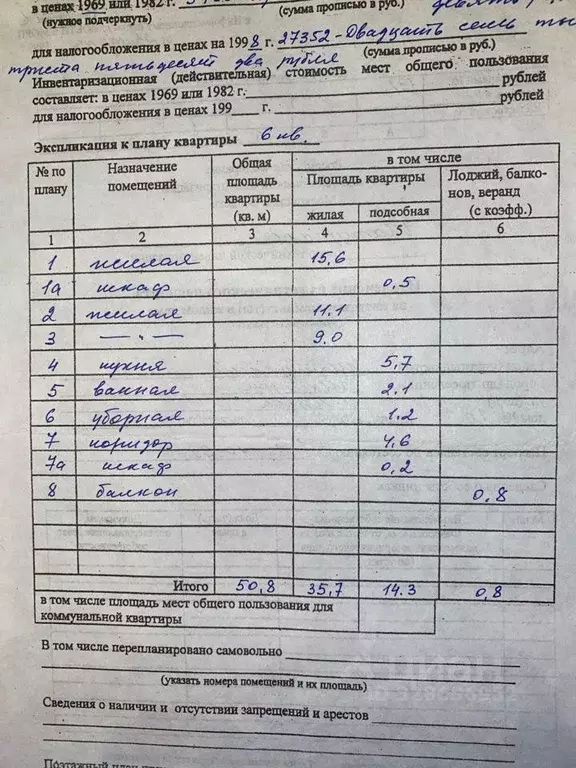 в ценах 1969 или 1982 г.
(нужное подчеркнуть) (сумма прописью в руб.)
для налогообложения в ценах на 1998 г. 27352 - Двадцать семь ты
триста пятьдесят два рубля (сумма прописью в руб.)
Инвентаризационная (действительная) стоимость мест общего пользования
составляет: в ценах 1969 или 1982 г. рублей
для налогообложения в ценах 199__ г. рублей
Экспликация к плану квартиры 6 кв.
№ по плану Назначение помещений Общая площадь квартиры (кв. м) в том числе
Площадь квартиры Лоджий, балконов, веранд (с коэфф.)
жилая подсобная
1 2 3 4 5 6
1 жилая 15,6
1а шкаф 0,5
2 жилая 11.1
3 — " — 9.0
4 кухня 5,7
5 ванная 2.1
6 уборная 1.2
7 коридор 4,6
7а шкаф 0,2
8 балкон 0,8
Итого 50,8 35,7 14.3 0,8
в том числе площадь мест общего пользования для
коммунальной квартиры
В том числе перепланировано самовольно
(указать номера помещений и их площадь)
Сведения о наличии и отсутствии запрещений и арестов
Поэтажный план